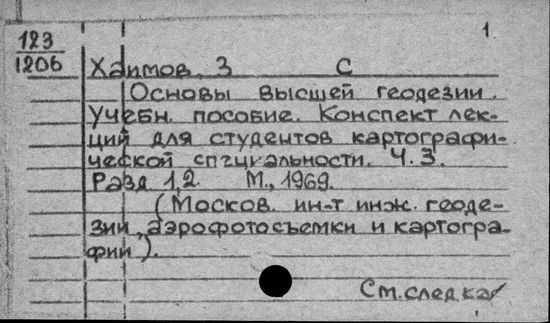 1
123
1206
Хаимов, З С
Основы высшей геодезии.
Учебн. пособие. Конспект лек-
ций для студентов картографи-
ческой специальности. Ч. 3.
Разд 1,2. М., 1969.
(Москов. ин-т инж. геоде-
зии, аэрофотосъемки и картогра-
фии).
См. след ка